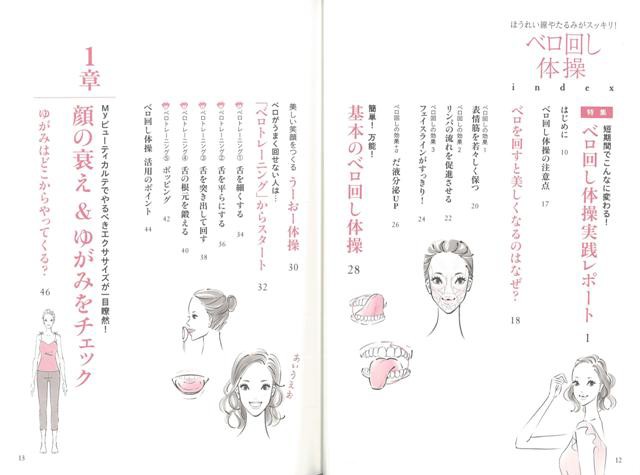 ほうれい線やたるみがスッキリ!
ベロ回し
体操
index
特集
短期間でこんなに変わる!
ベロ回し体操実践レポート 1
はじめに 10
ベロ回し体操の注意点 17
ベロを回すと美しくなるのはなぜ? 18
ベロ回しの効果1
表情筋を若々しく保つ 20
ベロ回しの効果2
リンパの流れを促進させる 22
ベロ回しの効果3
フェイスラインがすっきり! 24
ベロ回しの効果+α だ液分泌UP 26
簡単!万能!
基本のベロ回し体操 28
12
美しい笑顔をつくる うーおー体操 30
ベロがうまく回せない人は…
「ベロトレーニング」からスタート 32
ベロトレーニング① 舌を細くする 34
ベロトレーニング② 舌を平らにする 36
ベロトレーニング③ 舌を突き出して回す 38
ベロトレーニング④ 舌の根元を鍛える 40
ベロトレーニング⑤ ポッピング 42
ベロ回し体操 活用のポイント 44
あいうえお
1章
Myビューティカルテでやるべきエクササイズが一目瞭然!
顔の衰え&ゆがみをチェック
ゆがみはどこからやってくる? 46
13